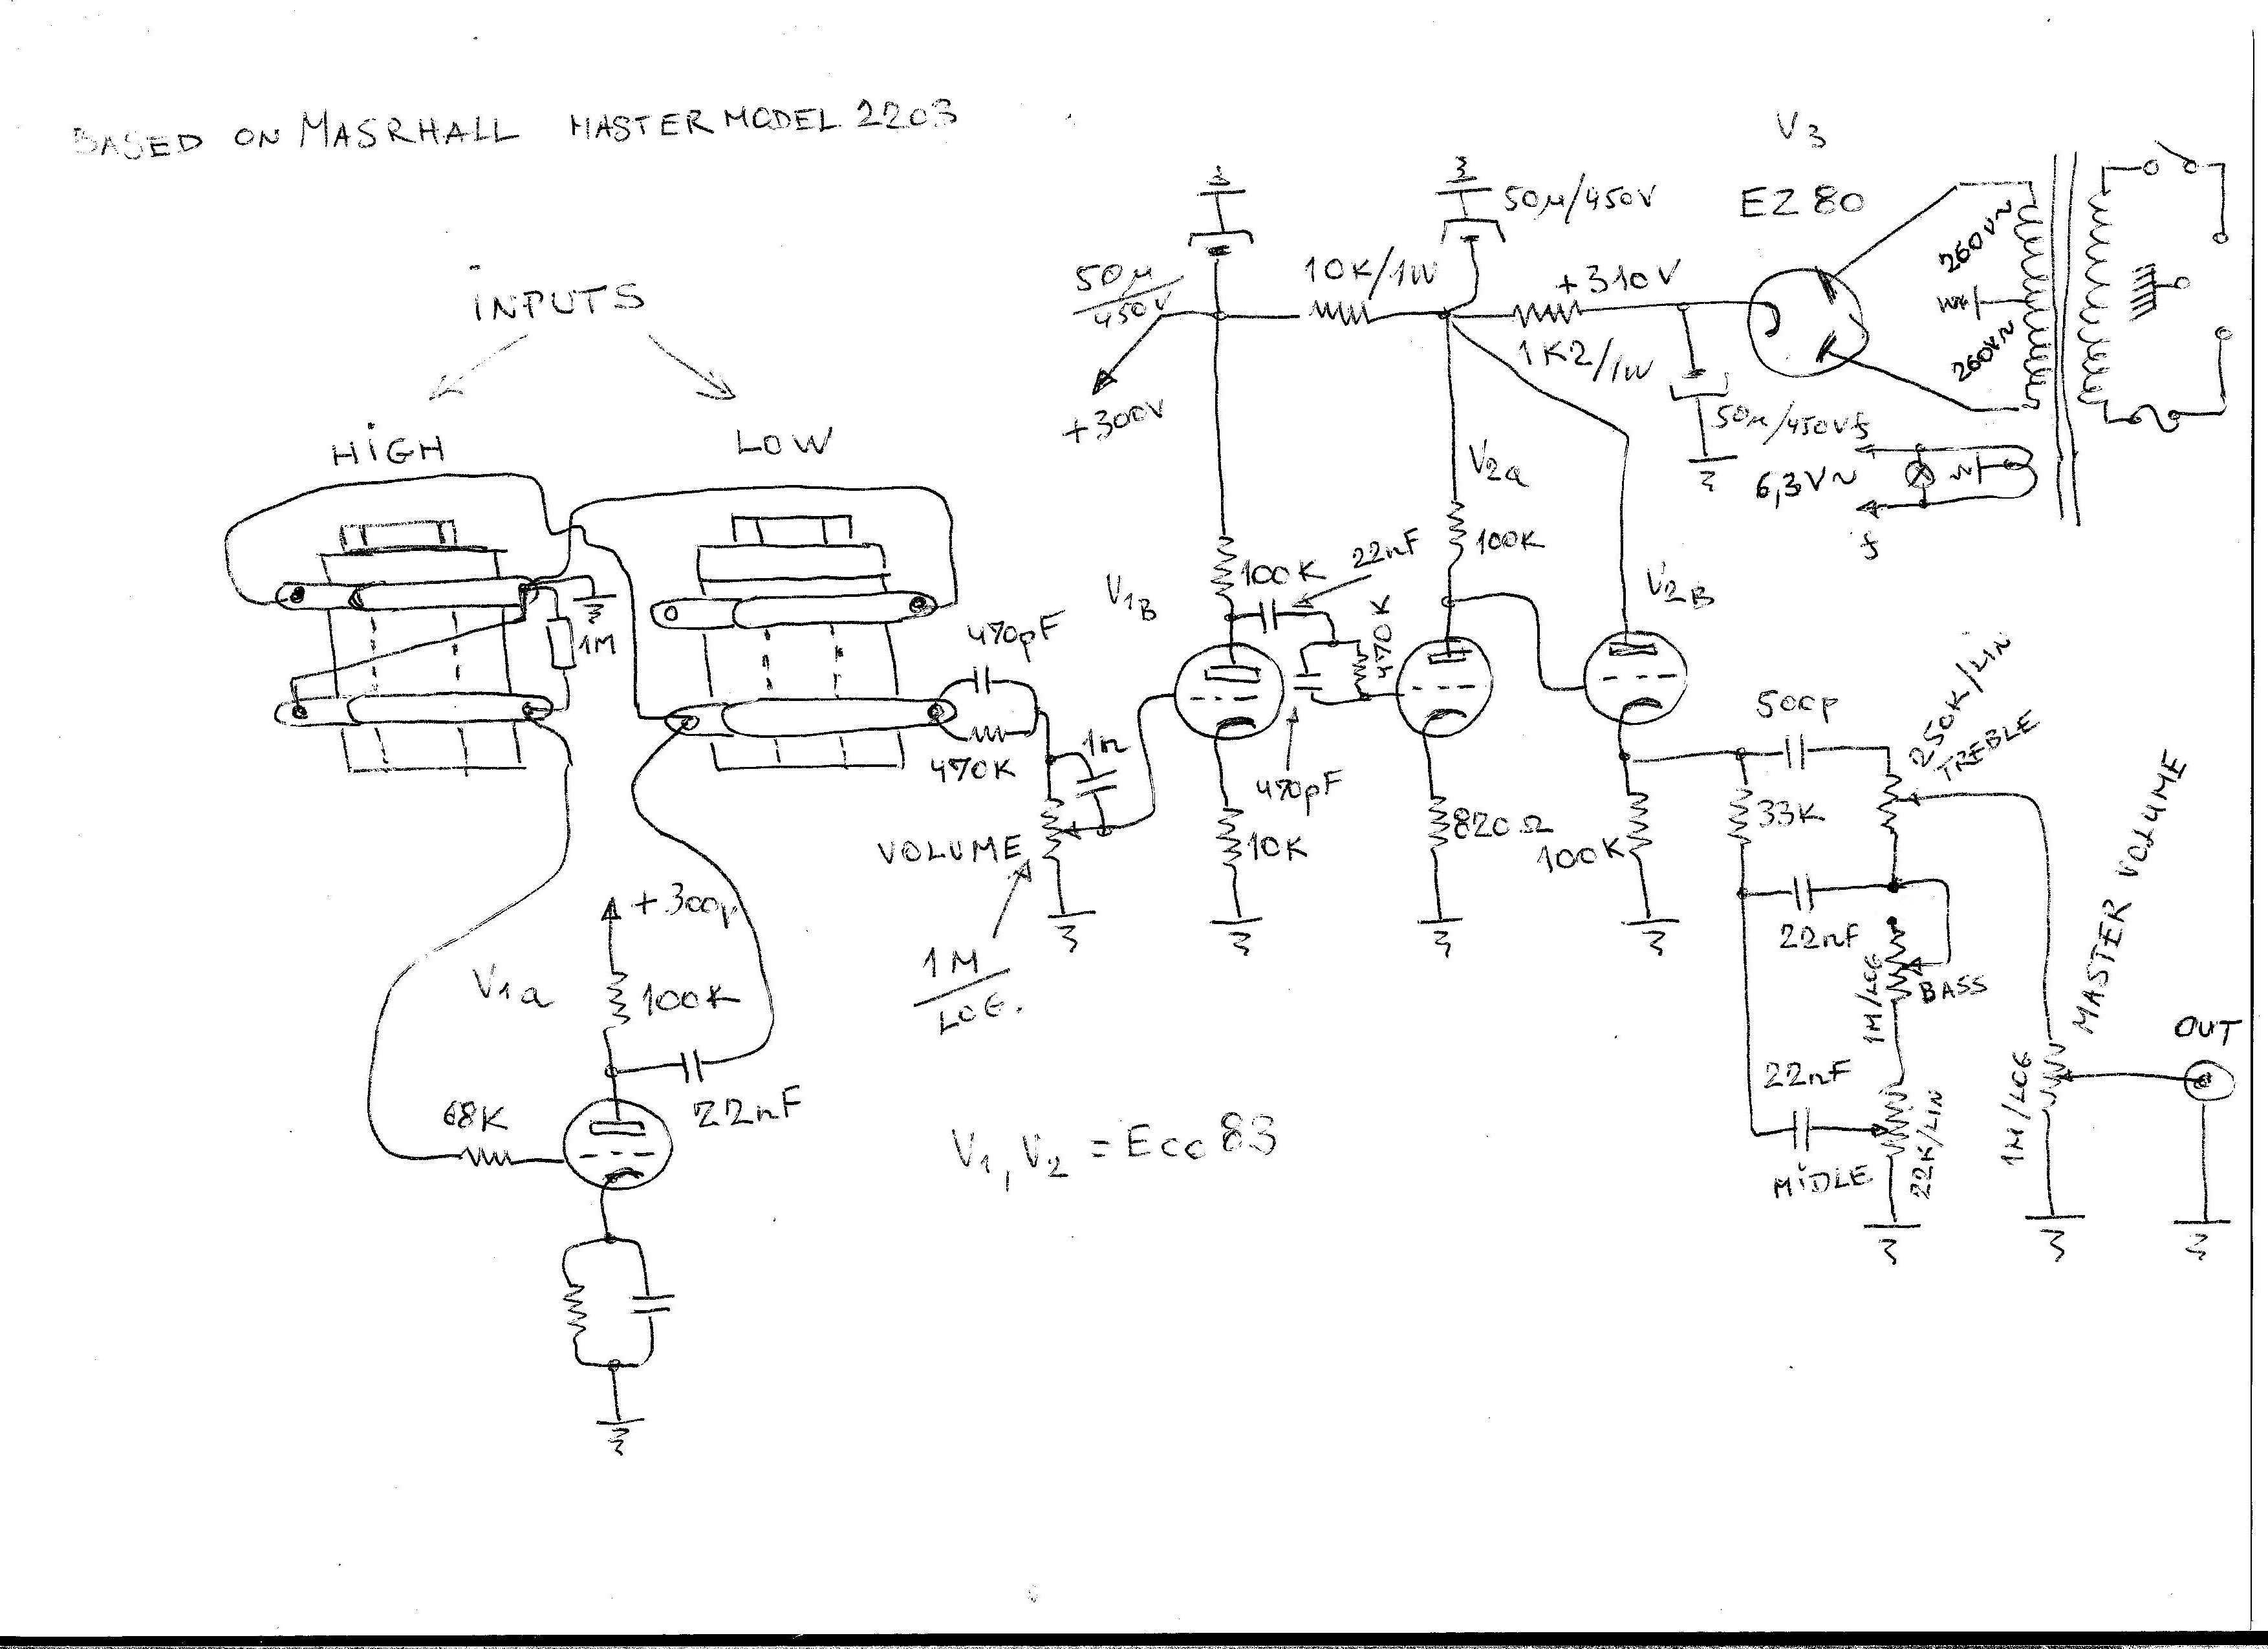 BASED ON MASRHALL MASTER MODEL 2203
V3
EZ 80
50µ/450V
50µ
450V
10K/1W
+310V
1K2/1W
260V~
260V~
50µ/450V
+300V
6,3V~
f
f
INPUTS
HIGH
LOW
V2a
100K
22nF
V1B
100K
470K
V2B
1M
470pF
470K
1n
470pF
VOLUME
1M
LOG.
10K
820Ω
100K
500p
250K/LIN
TREBLE
33K
22nF
1M/LOG
BASS
MASTER VOLUME
OUT
22nF
MIDLE
22K/LIN
1M/LOG
V1a
100K
68K
22nF
V1, V2 = Ecc 83